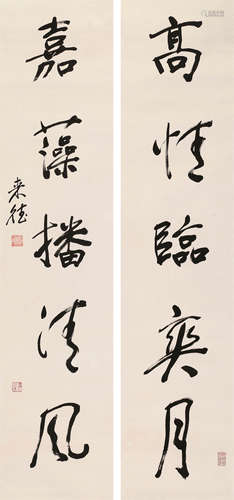 高情臨爽月
嘉藻播清風
來德